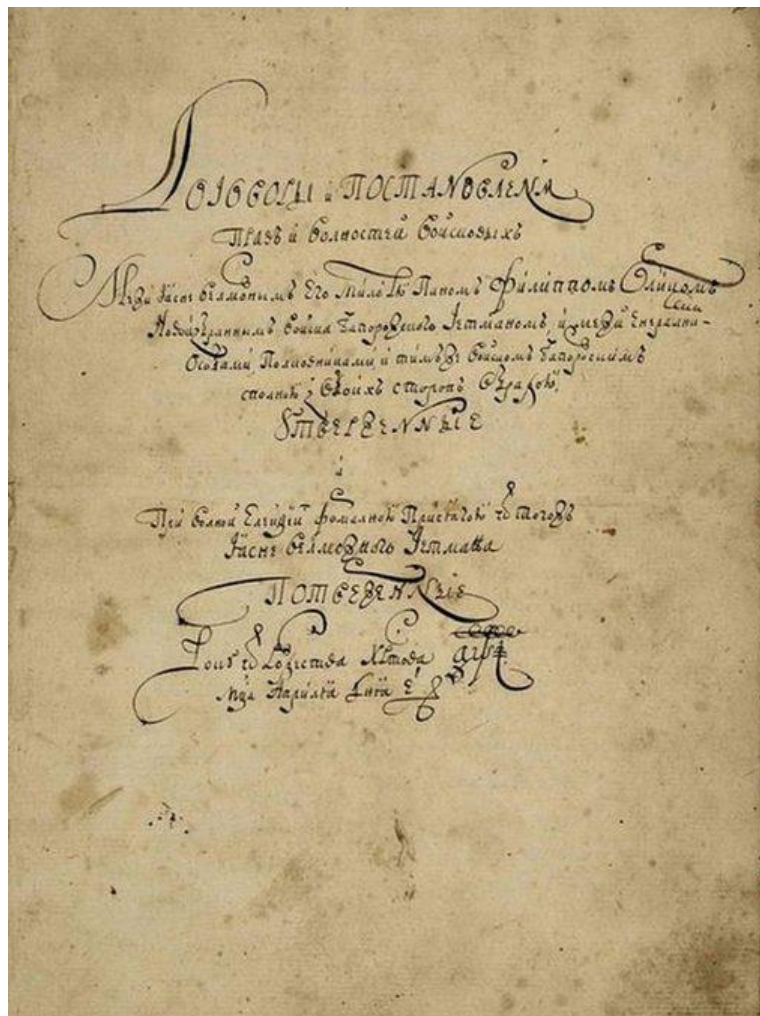 Договоры и Постановленя
Правъ и волностей войсковыхъ
Межи Ясне велможнымъ Его Мл̃стю Паномъ Филиппомъ Орликомъ
Новоизбраннымъ войска Запорозского Гетманомъ, и межи Енералними
Особами, Полковниками, и тимъ же войскомъ Запорозскимъ
сполною з обоихъ сторонъ обрадою,
Утверженные
и
При волной Елекцїи формалною Присягою ѿ тогожъ
Ясне велможного Гетмана
Потверженные
Року ѿ Рождества Христова ҂аѱı
Мц̃а Априля дня е̃